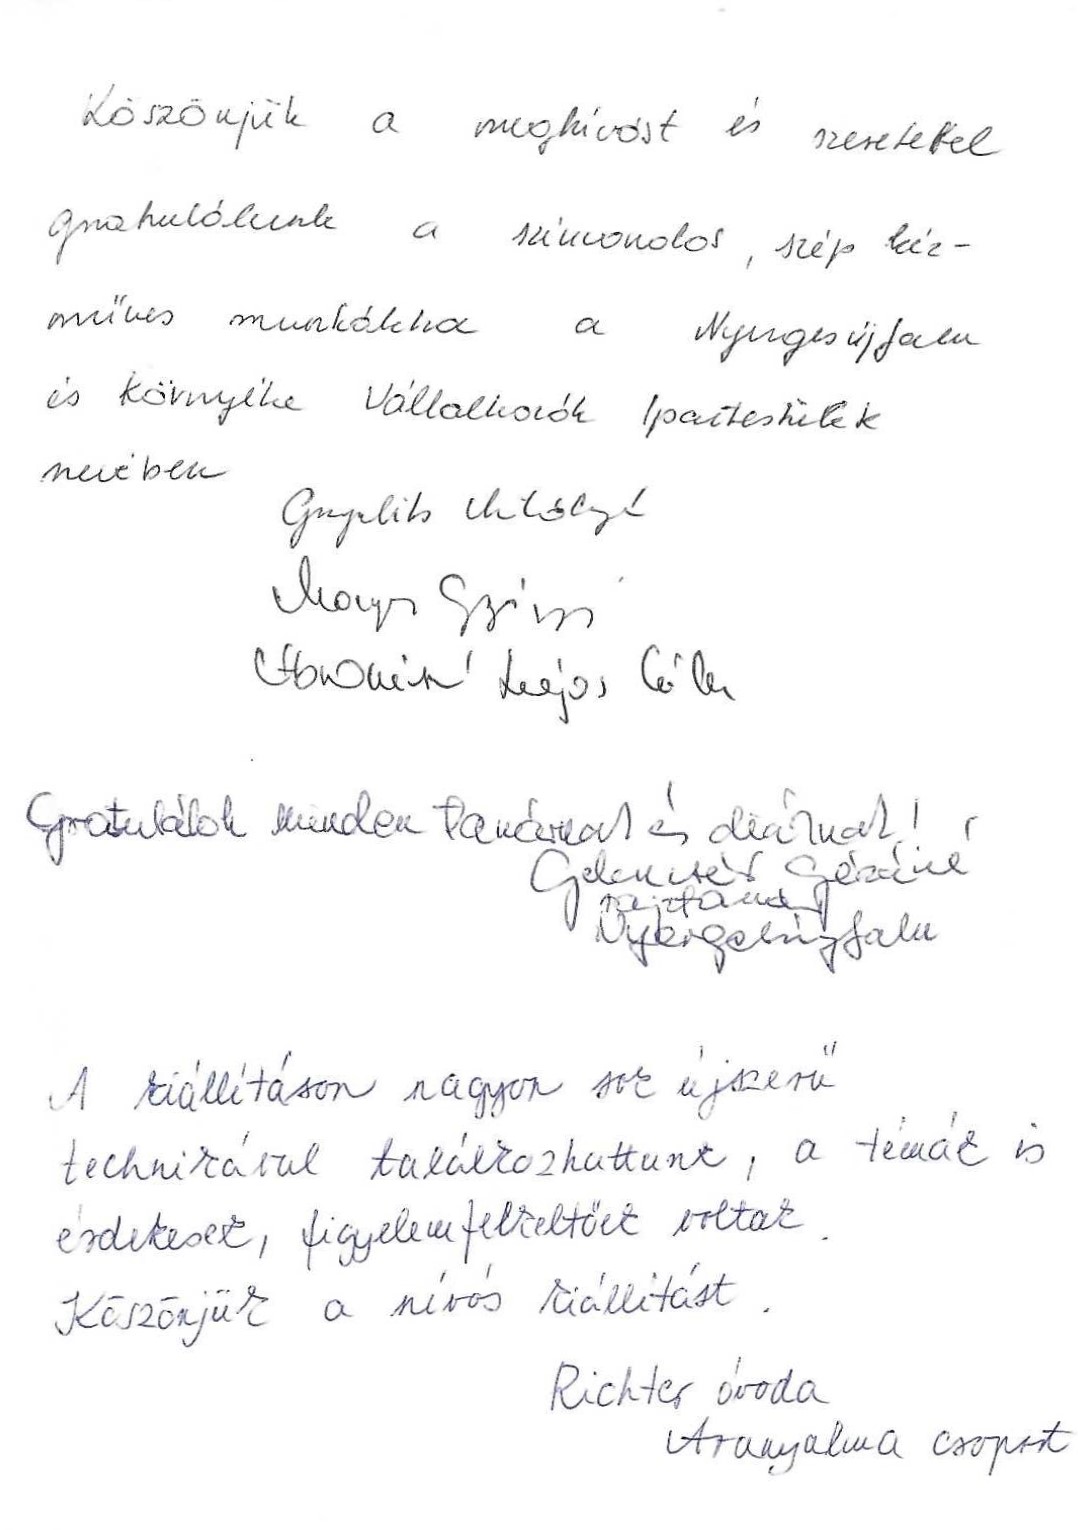 Köszönjük a meghívást és szeretettel
gratulálunk a színvonalas, szép kéz-
műves munkákhoz a Nyergesújfalu
és Környéke Vállalkozók Ipartestület
nevében
Mihályné
György
Lajos Béla
Gratulálok minden tanárnak és diáknak!
Gelencsér Gézáné
rajztanár
Nyergesújfalu
A kiállításon nagyon sok újszerű
technikával találkozhattunk, a témák is
érdekesek, figyelemfelkeltőek voltak.
Köszönjük a nívós kiállítást.
Richter óvoda
Aranyalma csoport